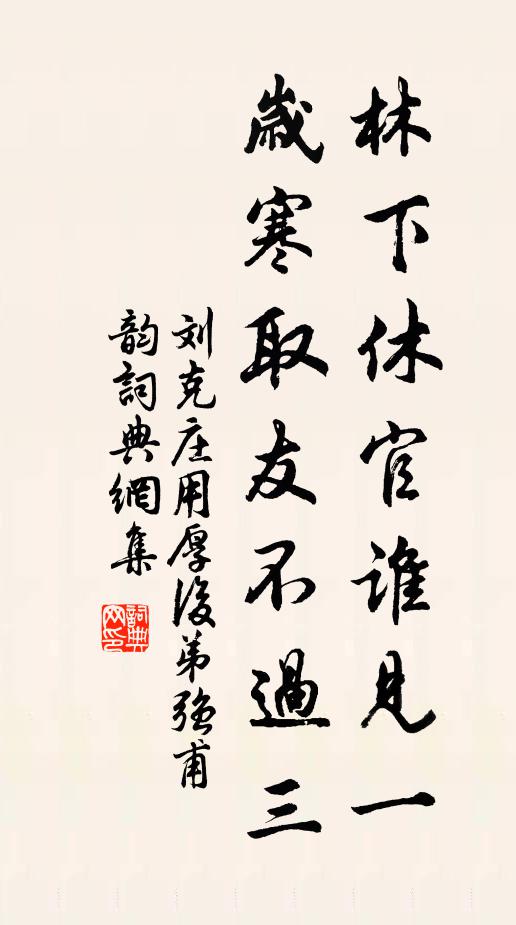 林下休官谁見一
歲寒取友不過三
刘克庄用厚後弟強甫
韵詞典網集
詞典
网印